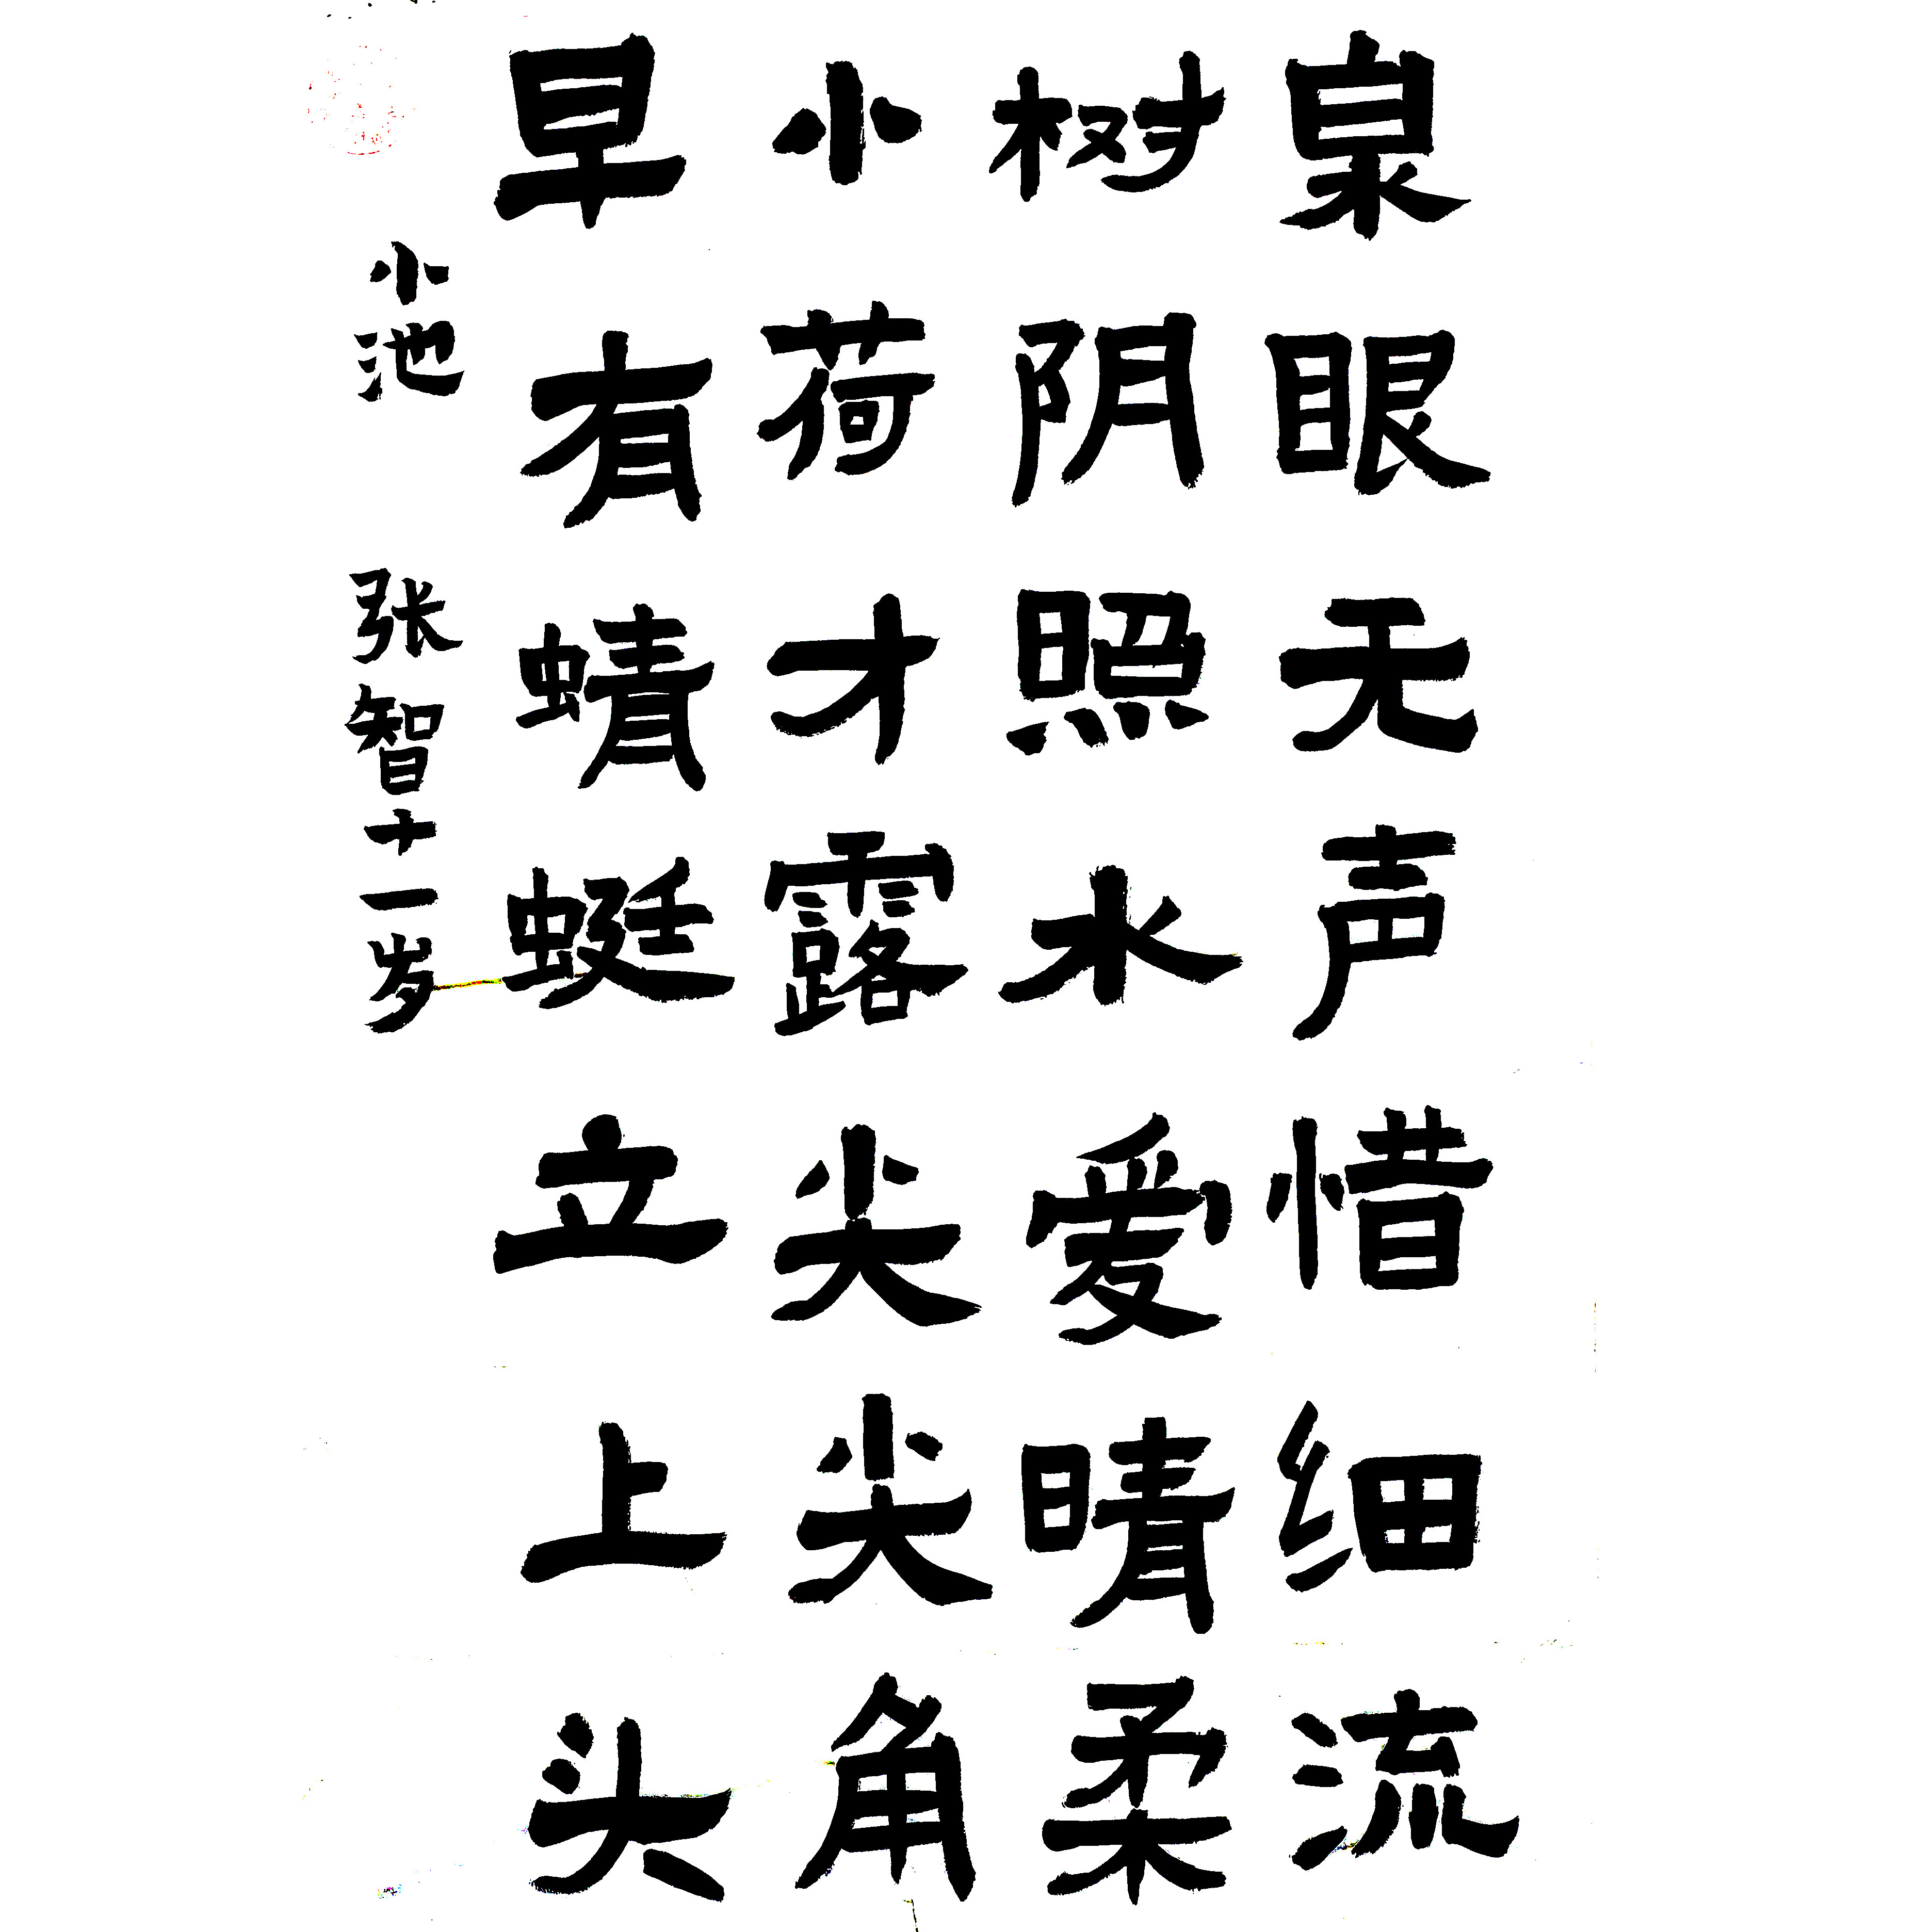 泉眼无声惜细流
树阴照水爱晴柔
小荷才露尖尖角
早有蜻蜓立上头
小池 张智十一岁